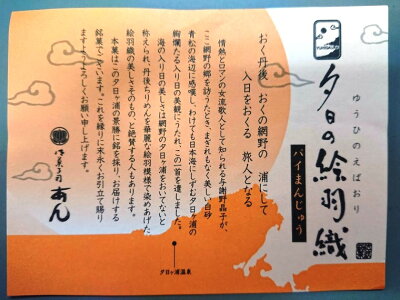 夕日の絵羽織
ゆうひのえばおり
パイまんじゅう
おく丹後 おくの網野の 浦にして
入日をおくる 旅人となる
情熱とロマンの女流歌人として知られる与謝野晶子が、
ここ網野の郷を訪うたとき、まぎれもなく美しい白砂
青松の海辺に感嘆し、わけても日本海にしずむ夕日の
絢爛たる入り日の美観にうたれ、この一首を遺しました。
海の入り日の美しさは網野の夕日ヶ浦をおいてないと
称えられ、丹後ちりめんを華麗な絵羽模様で染めあげた
絵羽織の美しさそのもの、と絶賛する人もあります。
本菓はこの夕日ヶ浦の景勝に銘を採り、お届けする
銘菓でございます。これを縁りに末永くお引立て賜り
ますようよろしくお願い申し上げます。
御菓子司 あん
夕日ヶ浦温泉